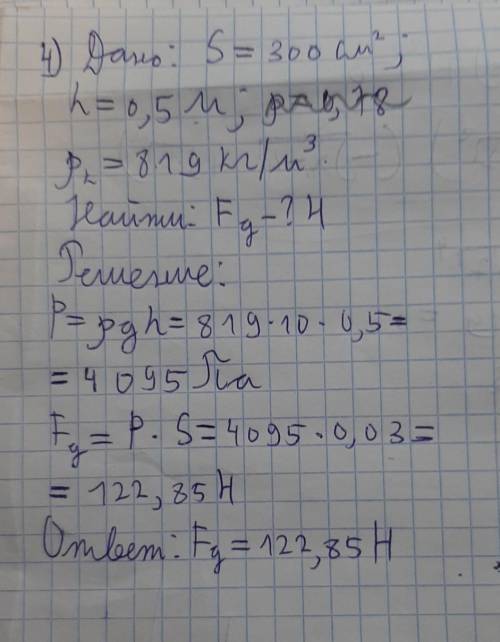 4) Дано: S = 300 см²;
h = 0,5 м;
ρₖ = 819 кг/м³
Найти: Fg - ? Н
Решение:
P = ρgh = 819·10·0,5 =
= 4095 Па
Fg = P·S = 4095·0,03 =
= 122,85 Н
Ответ: Fg = 122,85 Н